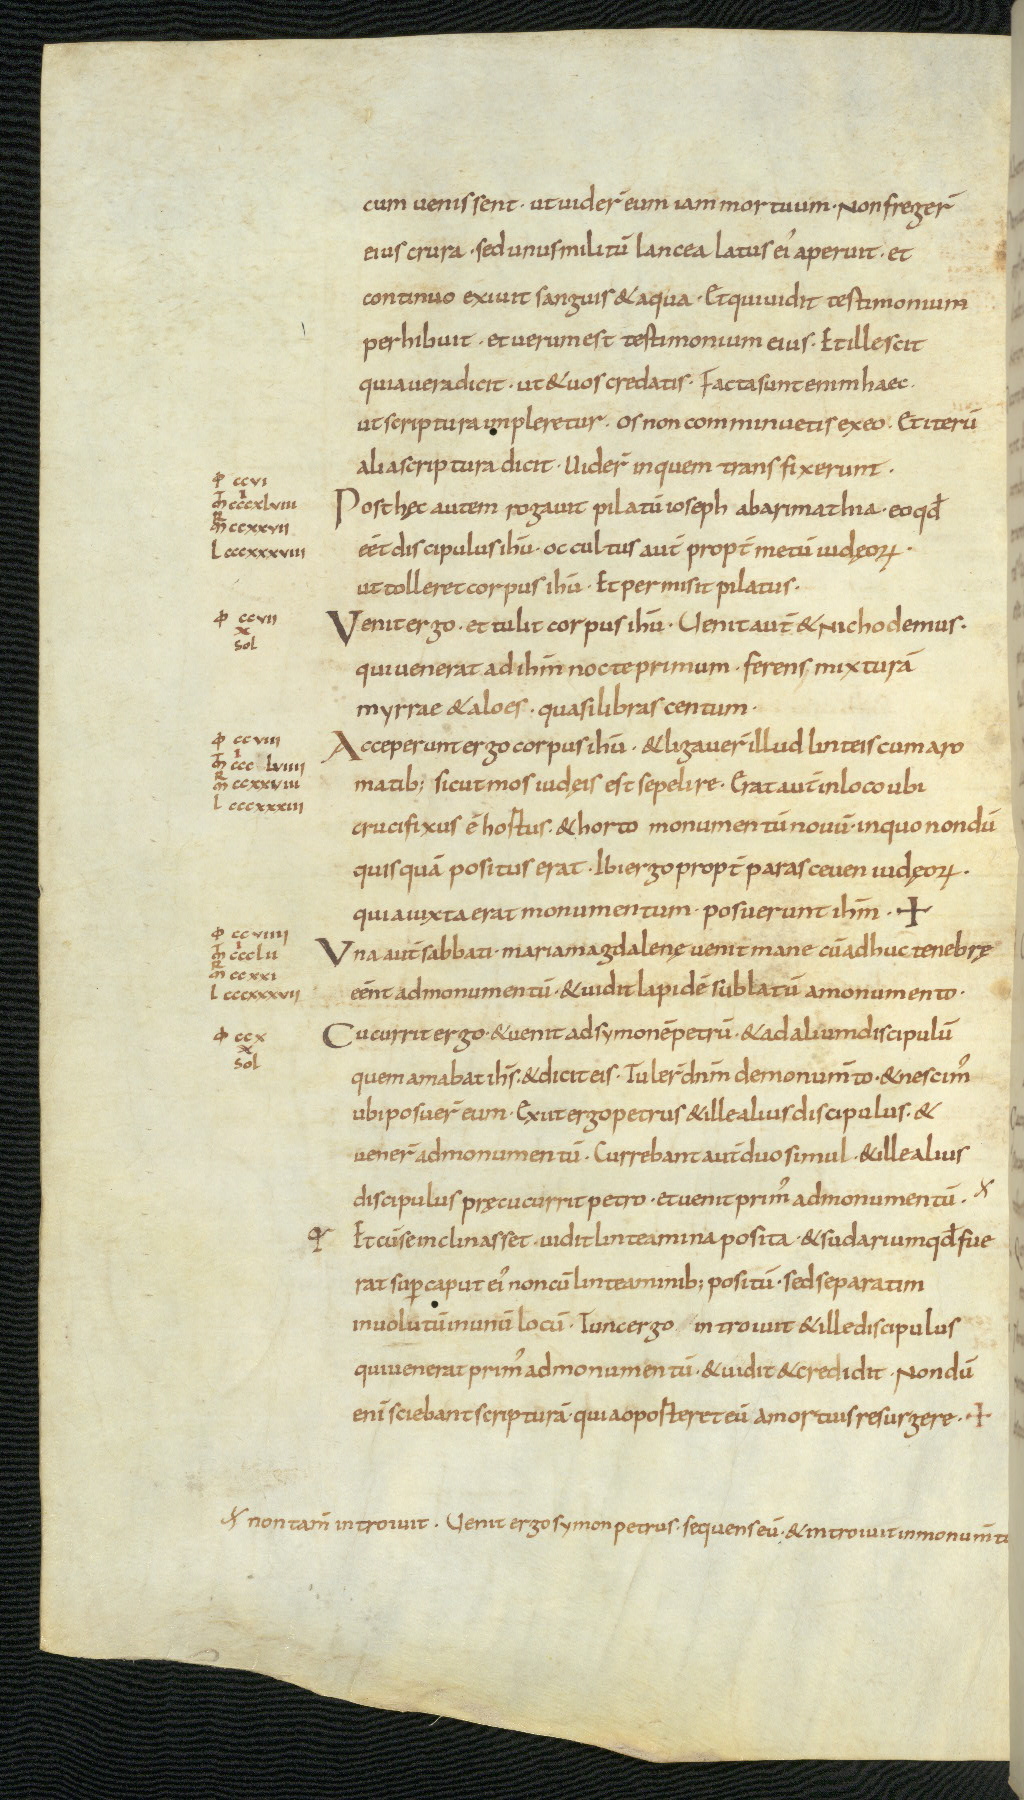 cum uenissent · ut uider̄ eum iam mortuum · Non freger̄
eius crura · sed unus militū lancea latus ei᾿ aperuit · et
continuo exiuit sanguis & aqua · Et qui uidit testimonium
perhibuit · et uerum est testimonium eius · Et ille scit
quia uera dicit · ut & uos credatis · Facta sunt enim haec ·
ut scriptura impleretur · os non comminuetis ex eo · Et iterū
alia scriptura dicit · Uider̄ in quem transfixerunt ·
φ ccvi
cccxlviii
ccxxvii
L cccxxxviii
Post hęc autem rogauit pilatū ioseph ab arimathia · eo qđ
eēt discipulus ihū · occultus aut̄ propt̄ metū iudęoꝝ ·
ut tolleret corpus ihū · Et permisit pilatus ·
φ ccvii
x
sol
Venit ergo · et tulit corpus ihū · Uenit aut̄ & Nichodemus ·
qui uenerat ad ihm̄ nocte primum · ferens mixturā
myrrae & aloes · quasi libras centum ·
φ ccviii
ccc lviiii
ccxxviii
L cccxxxiii
Acceperunt ergo corpus ihū · & ligauer̄ illud linteis cum aro
matib; sicut mos iudęis est sepelire · Erat aut̄ in loco ubi
crucifixus ē hostus · & horto monumentū nouū · in quo nondū
quisquā positus erat · Ibi ergo propt̄ parasceuen iudęoꝝ ·
quia iuxta erat monumentum · posuerunt ihm̄ · ✢
φ ccviiii
ccclii
ccxxxi
L cccxxxvii
Vna aut̄ sabbati · maria magdalenę uenit mane cū adhuc tenebrę
eēnt ad monumentū · & uidit lapidē sublatū a monumento ·
φ ccx
x
sol
Cucurrit ergo · & uenit ad symonē petrū · & ad alium discipulū
quem amabat ihs̄ · & dicit eis · Tuler̄ dnm̄ de monum̄to · & nescim᾿
ubi posuer̄ eum · Exiit ergo petrus & ille alius discipulus · &
uener̄ ad monumentū · Currebant aut̄ duo simul · & ille alius
discipulus pręcucurrit petro · et uenit prim᾿ ad monumentū · x
Et cū se inclinasset · uidit linteamina posita · & sudarium qđ fue
rat suꝑ caput ei᾿ non cū linteaminib; positū · sed separatim
inuolutū in unū locū · Tunc ergo introiuit & ille discipulus
qui uenerat prim᾿ ad monumentū · & uidit & credidit · Nondū
eni̅ sciebant scripturā · quia oposteret eū a mortuis resurgere · ✢
x non tam̄ introiuit · Uenit ergo symon petrus · sequens eū · & introiuit in monum̄tū